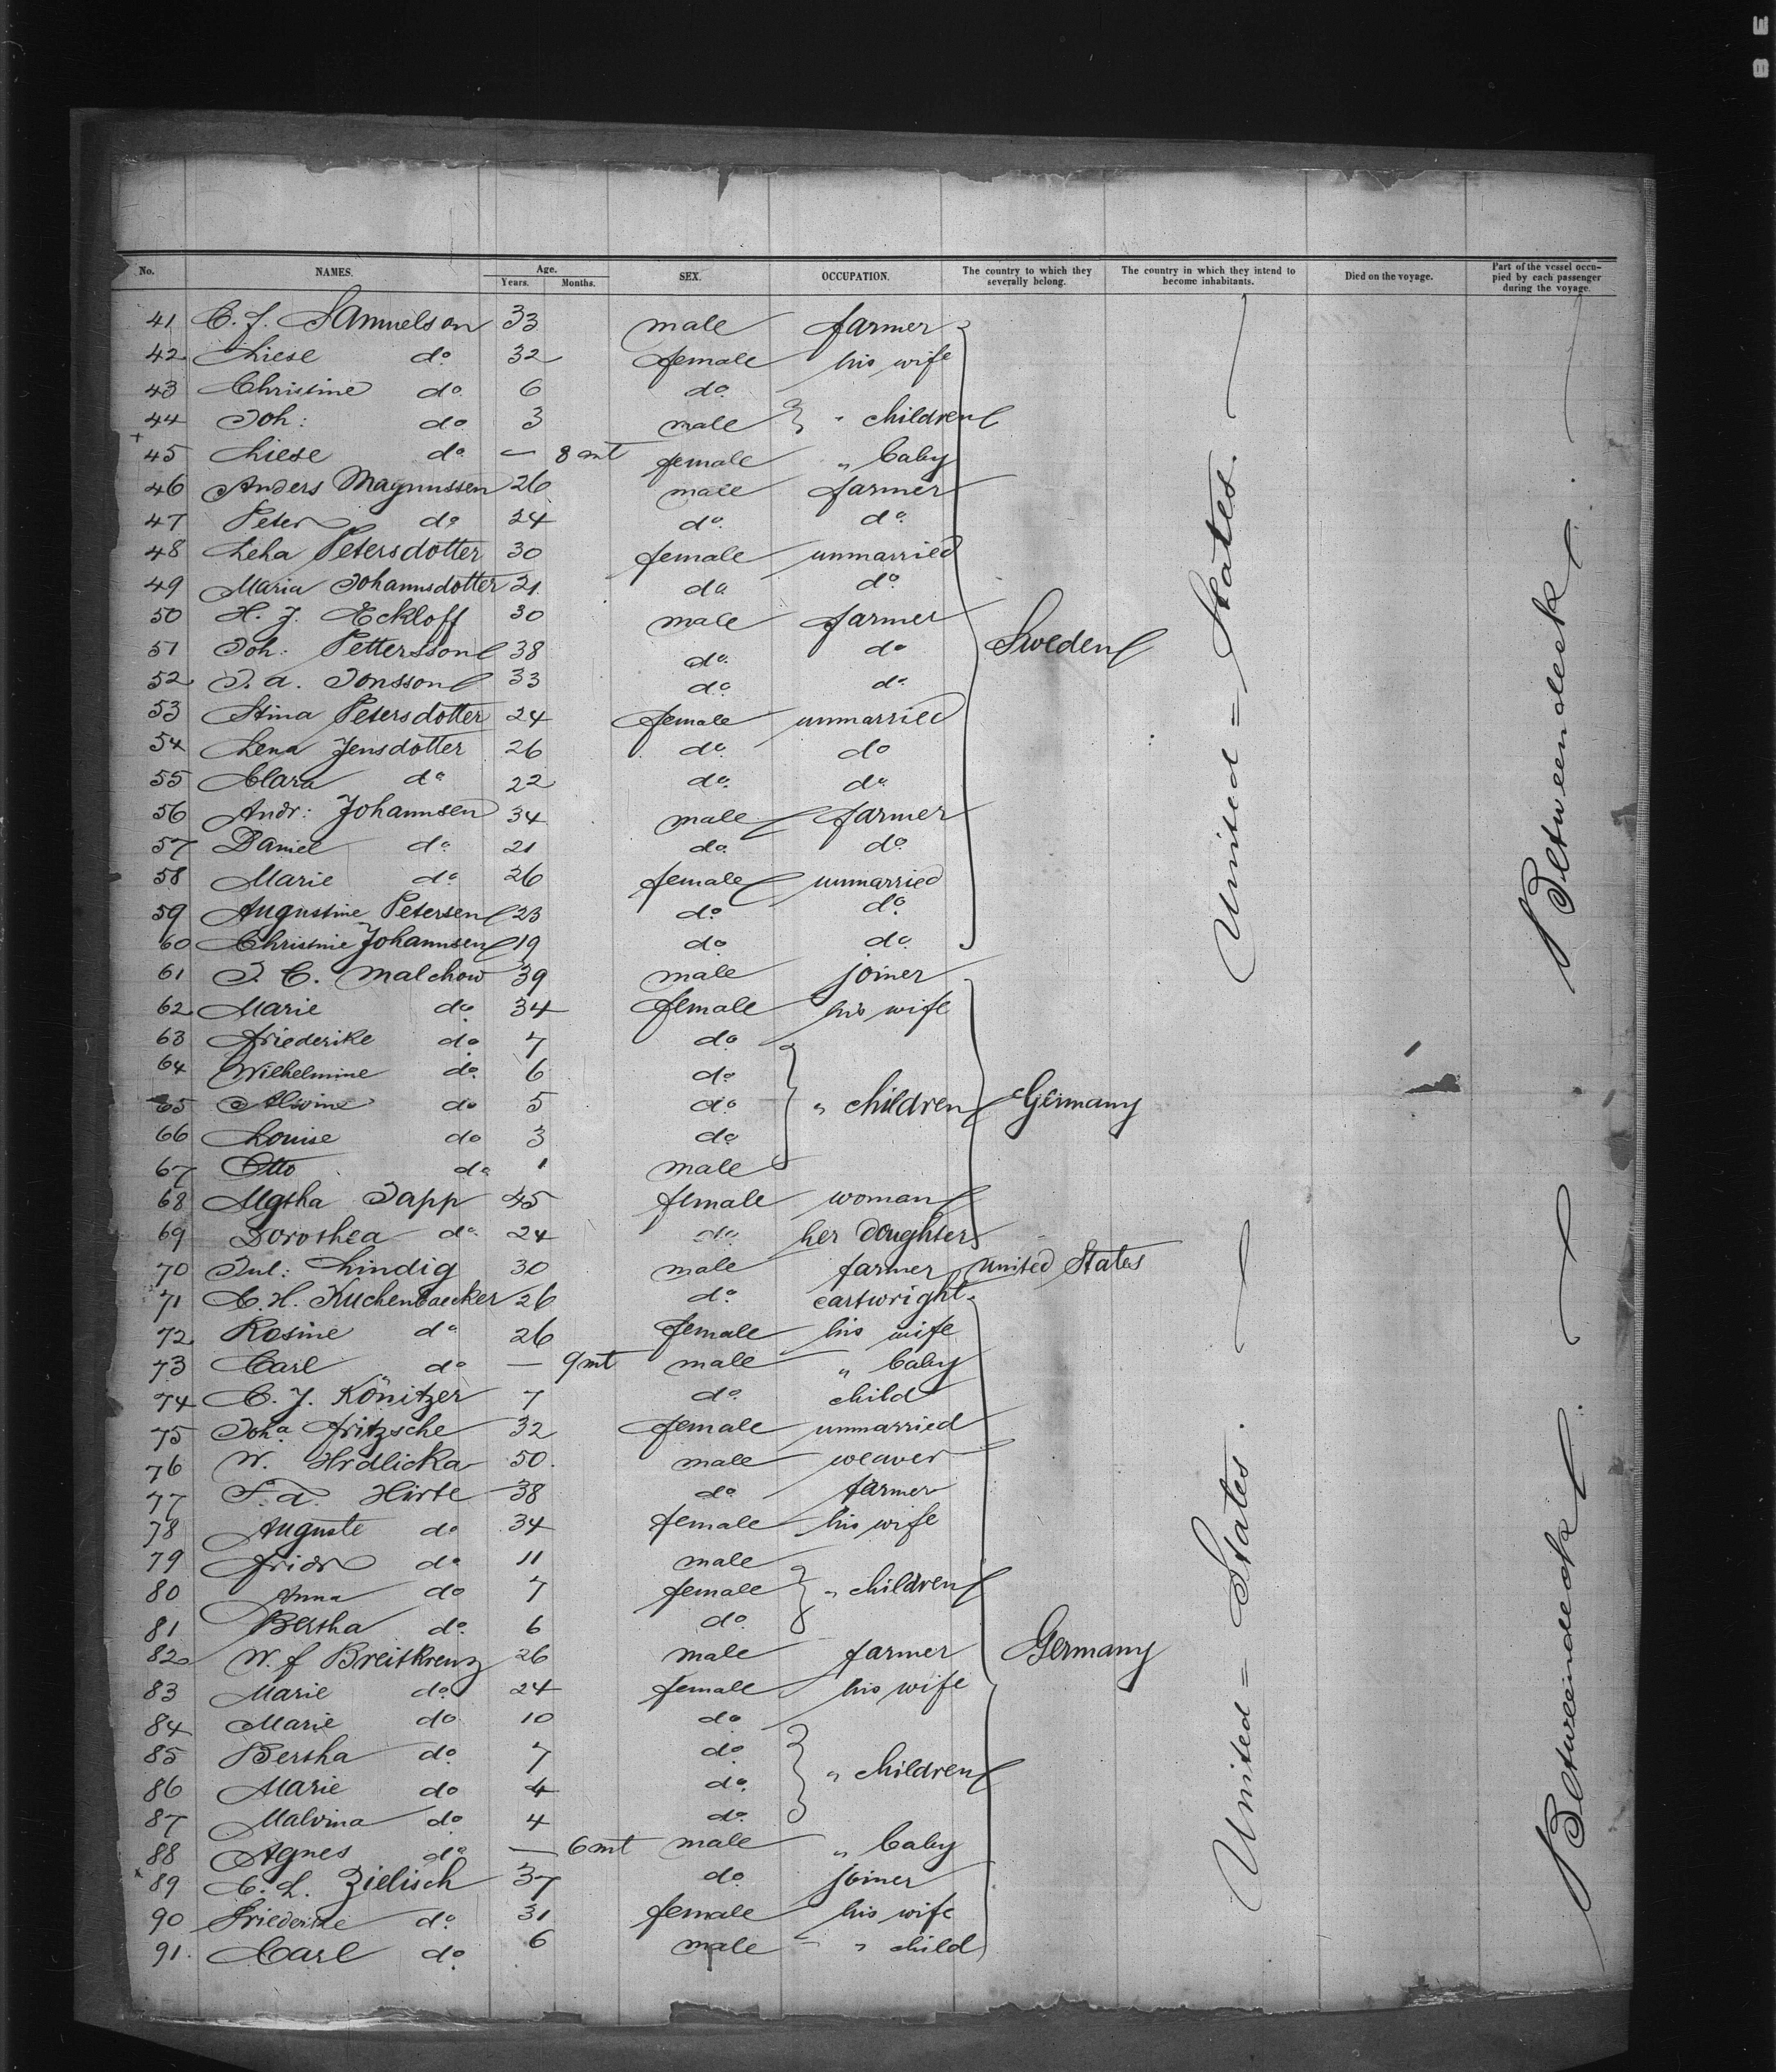 No. NAMES. Age. Years. Months. SEX. OCCUPATION. The country to which they severally belong. The country in which they intend to become inhabitants. Died on the voyage. Part of the vessel occupied by each passenger during the voyage.
41 C. J. Samuelson 33 male farmer
42 Liese do 32 female his wife
43 Christine do 6 do
44 Joh: do 3 male " children
45 Liese do — 8 mt female " baby
46 Anders Magnussen 26 male farmer
47 Peter do 24 do do
48 Lena Petersdotter 30 female unmarried
49 Maria Johannsdotter 21 do do
50 H. J. Eckloff 30 male farmer
51 Joh: Pettersson 38 do do Sweden
52 J. A. Jonsson 33 do do
53 Stina Petersdotter 24 female unmarried
54 Lena Jensdotter 26 do do
55 Clara do 22 do do
56 Andr: Johannsen 34 male farmer
57 Daniel do 21 do do
58 Marie do 26 female unmarried
59 Augustine Petersen 23 do do
60 Christine Johannsen 19 do do
61 J. C. Malchow 39 male joiner
62 Marie do 34 female his wife
63 Friederike do 7 do
64 Wilhelmine do 6 do
65 Alwine do 5 do " children Germany
66 Louise do 3 do
67 Otto do 1 male
68 Japp 45 female woman
69 Dorothea do 24 do her doughter
70 Jul: Lindig 30 male farmer United States
71 C. H. Kuchenbaecker 26 do cartwright
72 Rosine do 26 female his wife
73 Carl do — 9 mt male " baby
74 C. J. Könitzer 7 do child
75 Joha Fritzsche 32 female unmarried
76 W. Hrdlicka 50 male weaver
77 F. A. Hirte 38 do farmer
78 Auguste do 34 female his wife
79 Fridr do 11 male
80 Anna do 7 female " children
81 Bertha do 6 do
82 W. F Breitkreuz 26 male farmer Germany
83 Marie do 24 female his wife
84 Marie do 10 do
85 Bertha do 7 do
86 Marie do 4 do " children
87 Malvina do 4 do
88 Agnes do — 6 mt male " baby
89 C. L. Zielisch 37 do joiner
90 Friederike do 31 female his wife
91. Carl do 6 male " child
United = States.
Betweendeck.
United = States.
Betweendeck.